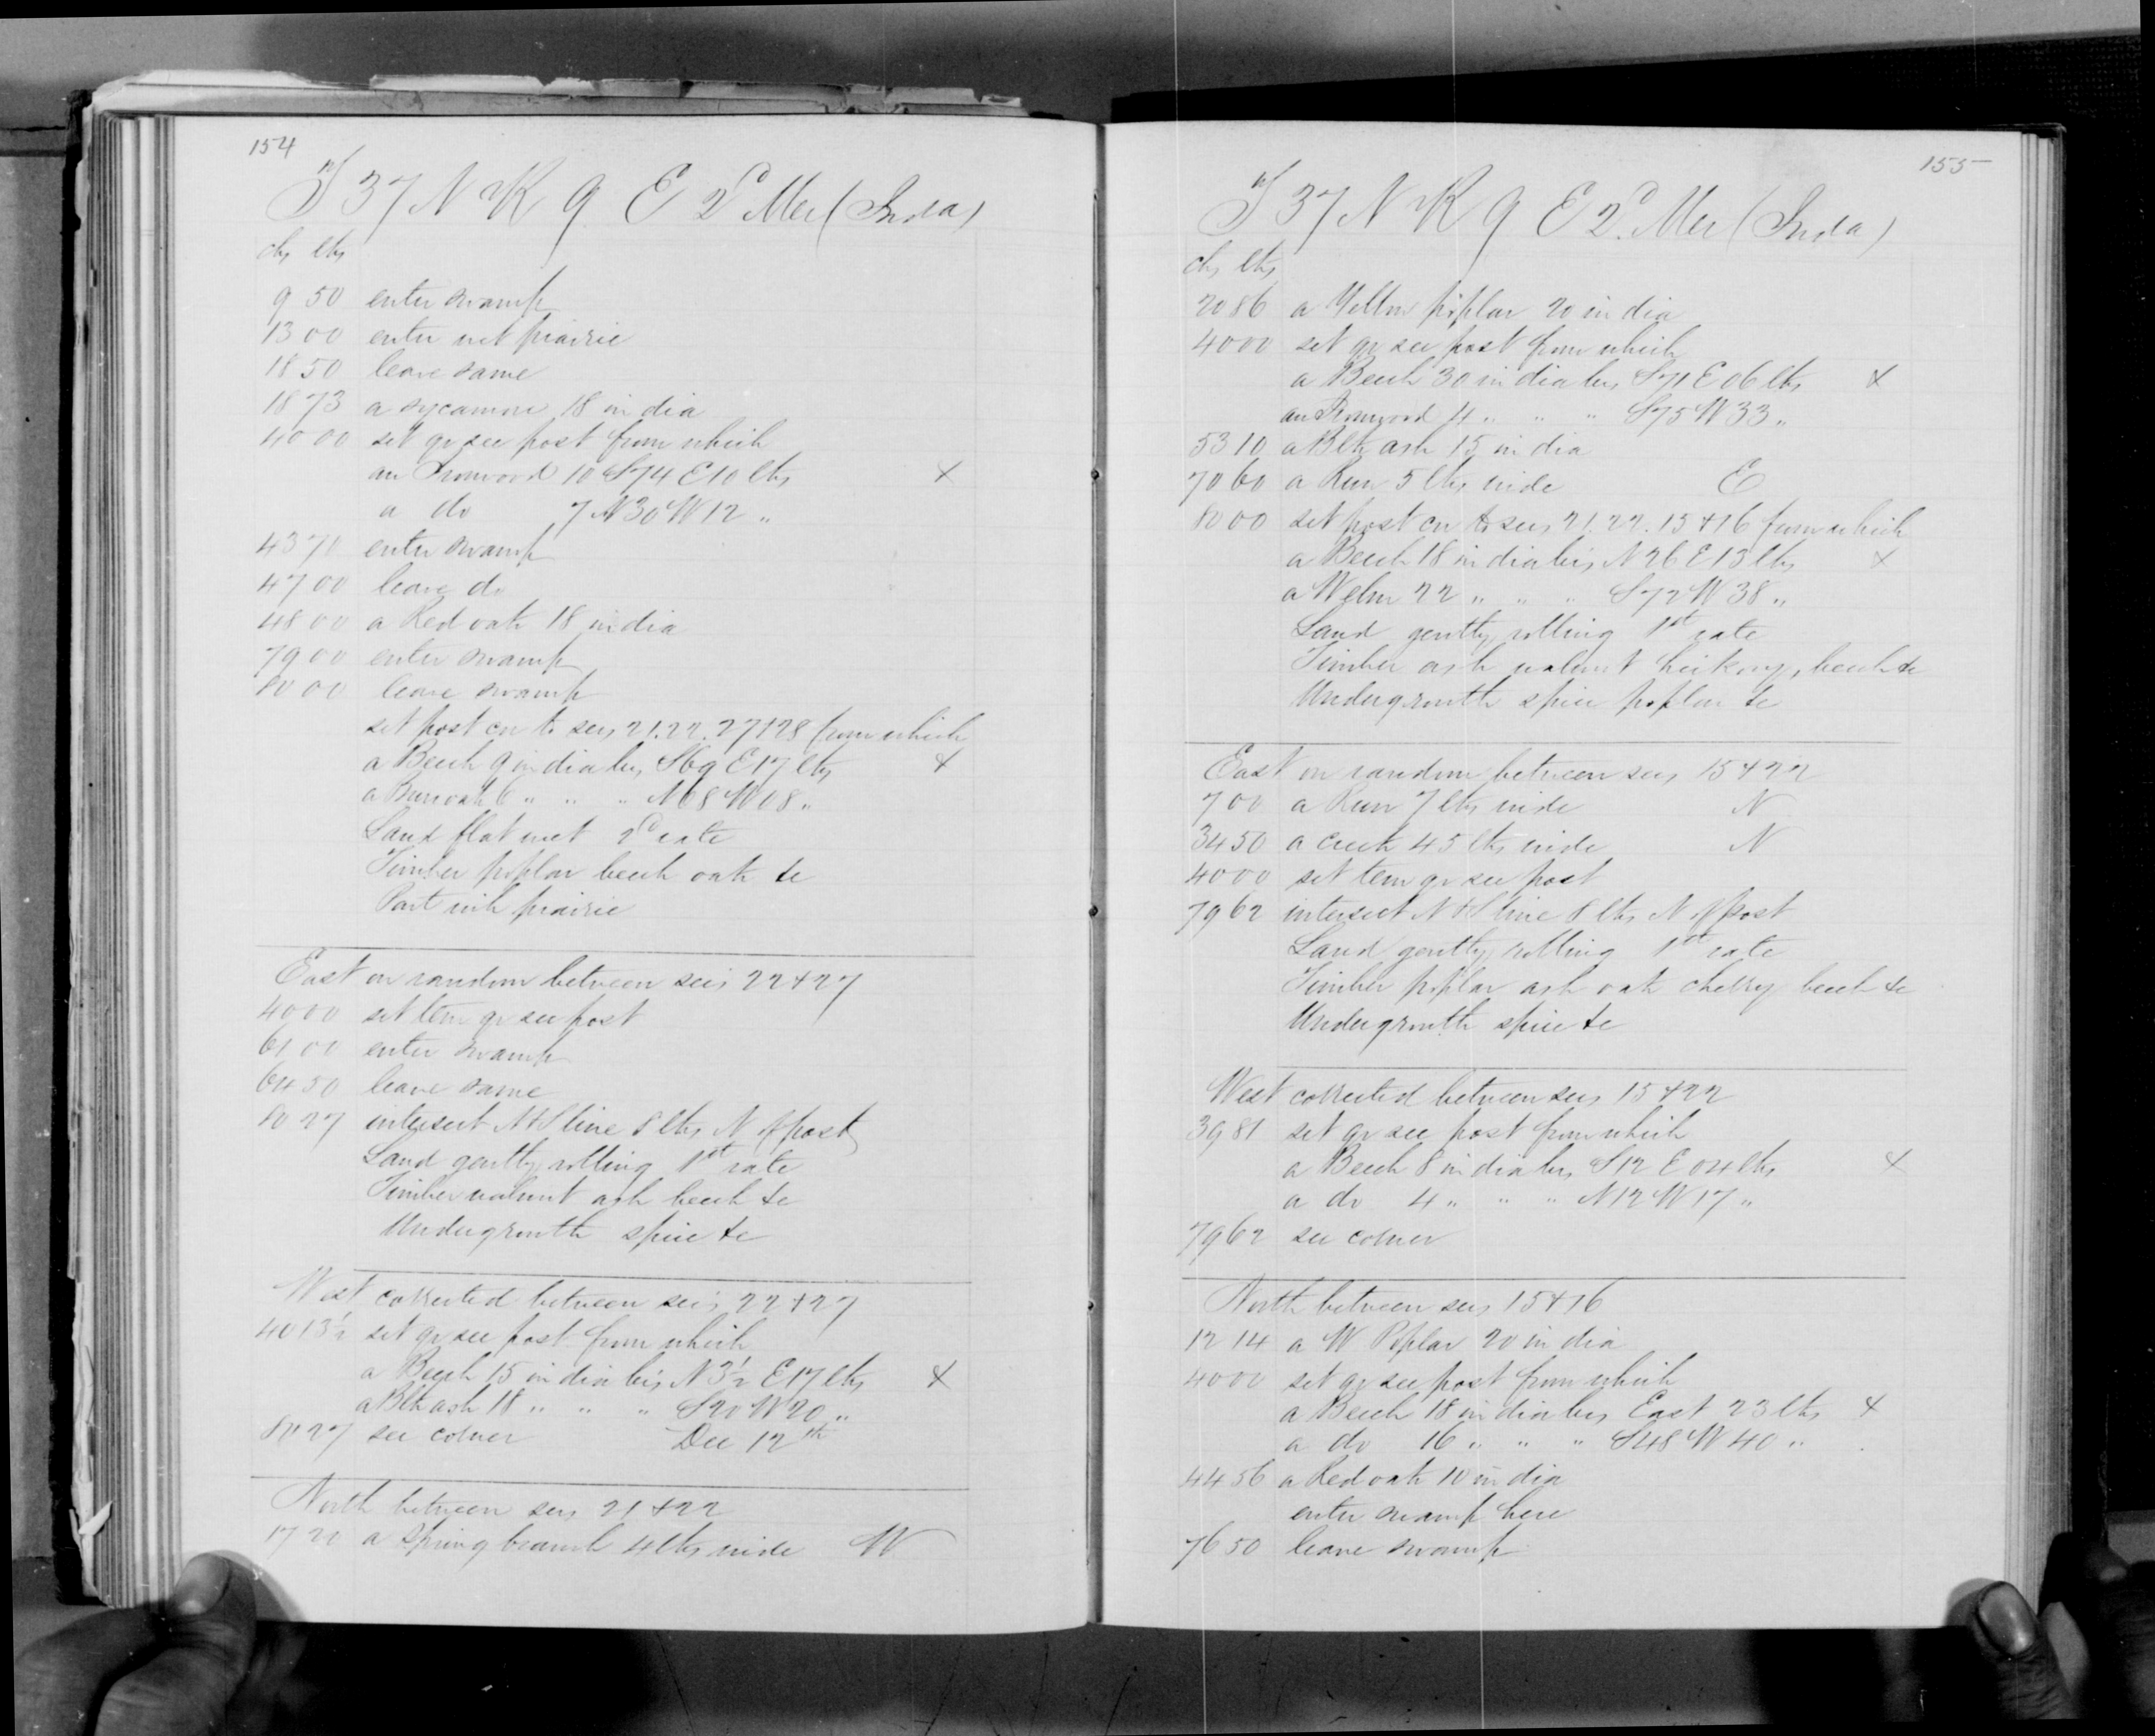 154
T 37 N R 9 E 2d Mer (Inda)
chs lks
9 50 enter swamp
13 00 enter wet prairie
18 50 leave same
18 73 a sycamore 18 in dia
40 00 set qr sec post from which
an Ironwood 10 S74 E10 lks X
a do 7 N30 W12 "
43 70 enter swamp
47 00 leave do
48 00 a Red oak 18 in dia
79 00 enter swamp
80 00 leave swamp
set post cor to secs 21.22.27+28 from which
a Beech 9 in dia brs S69 E17 lks X
a Burr oak 6 " " " N68 W08 "
Land flat wet 2d rate
Timber poplar beech oak &c
Part wih prairie
East on random between secs 22+27
40 00 set tem qr sec post
61 00 enter swamp
64 50 leave same
80 27 intersect N+S line 8 lks N of post
Land gently rolling 1st rate
Timber walnut ash beech &c
Undergrowth spice &c
West corrected between secs 22+27
40 13½ set qr sec post from which
a Beech 15 in dia brs N3½ E17 lks X
a Blk ash 18 " " " S20 W20 "
80 27 sec corner Dec 12th
North between secs 21+22
17 20 a spring branch 4 lks wide W
155
T 37 N R 9 E 2d Mer (Inda)
chs lks
20 86 a Yellow poplar 20 in dia
40 00 set qr sec post from which
a Beech 30 in dia brs S71 E06 lks X
an Ironwood 4 " " " S75 W33 "
53 10 a Blk ash 15 in dia
70 60 a Run 5 lks wide E
80 00 set post cor to secs 21.22.15+16 from which
a Beech 18 in dia brs N26 E13 lks X
a W elm 22 " " " S72 W38 "
Land gently rolling 1st rate
Timber ash walnut hickory, beech &c
Undergrowth spice poplar &c
East on random between secs 15+22
7 00 a Run 7 lks wide N
34 50 a creek 45 lks wide N
40 00 set tem qr sec post
79 62 intersect N+S line 8 lks N of post
Land gently rolling 1st rate
Timber poplar ash oak cherry beech &c
Undergrowth spice &c
West corrected between secs 15+22
39 81 set qr sec post from which
a Beech 8 in dia brs S12 E04 lks X
a do 4 " " " N12 W17 "
79 62 sec corner
North between secs 15+16
12 14 a W Poplar 20 in dia
40 00 set qr sec post from which
a Beech 18 in dia brs East 23 lks X
a do 16 " " " S48 W40 "
44 56 a Red oak 10 in dia
enter swamp here
76 50 leave swamp